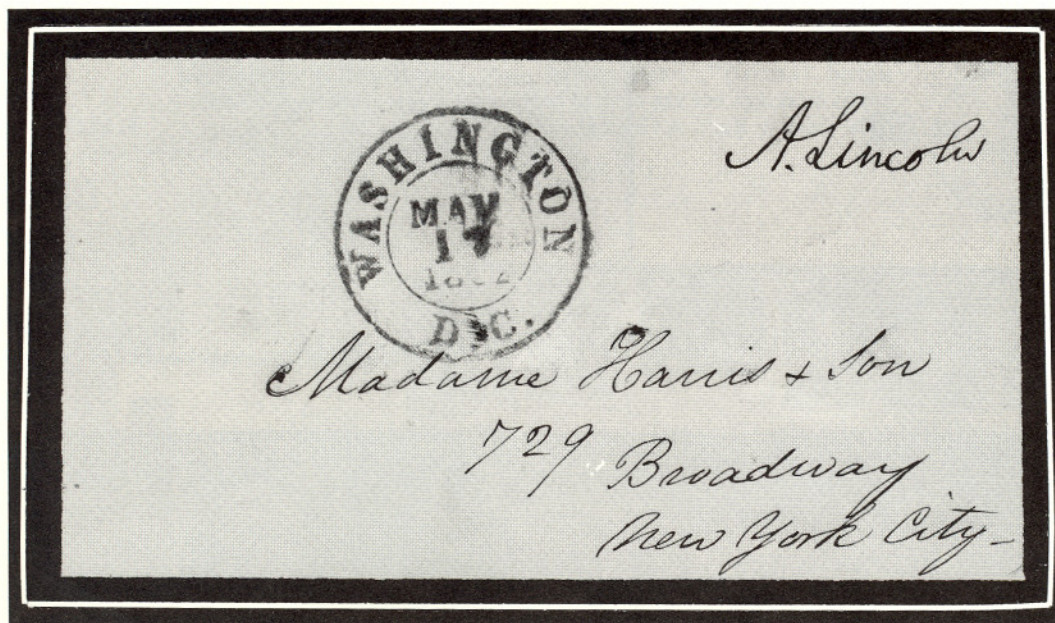 A. Lincoln
WASHINGTON
MAY
17
1862
D.C.
Madame Harris & Son
729 Broadway
New York City-